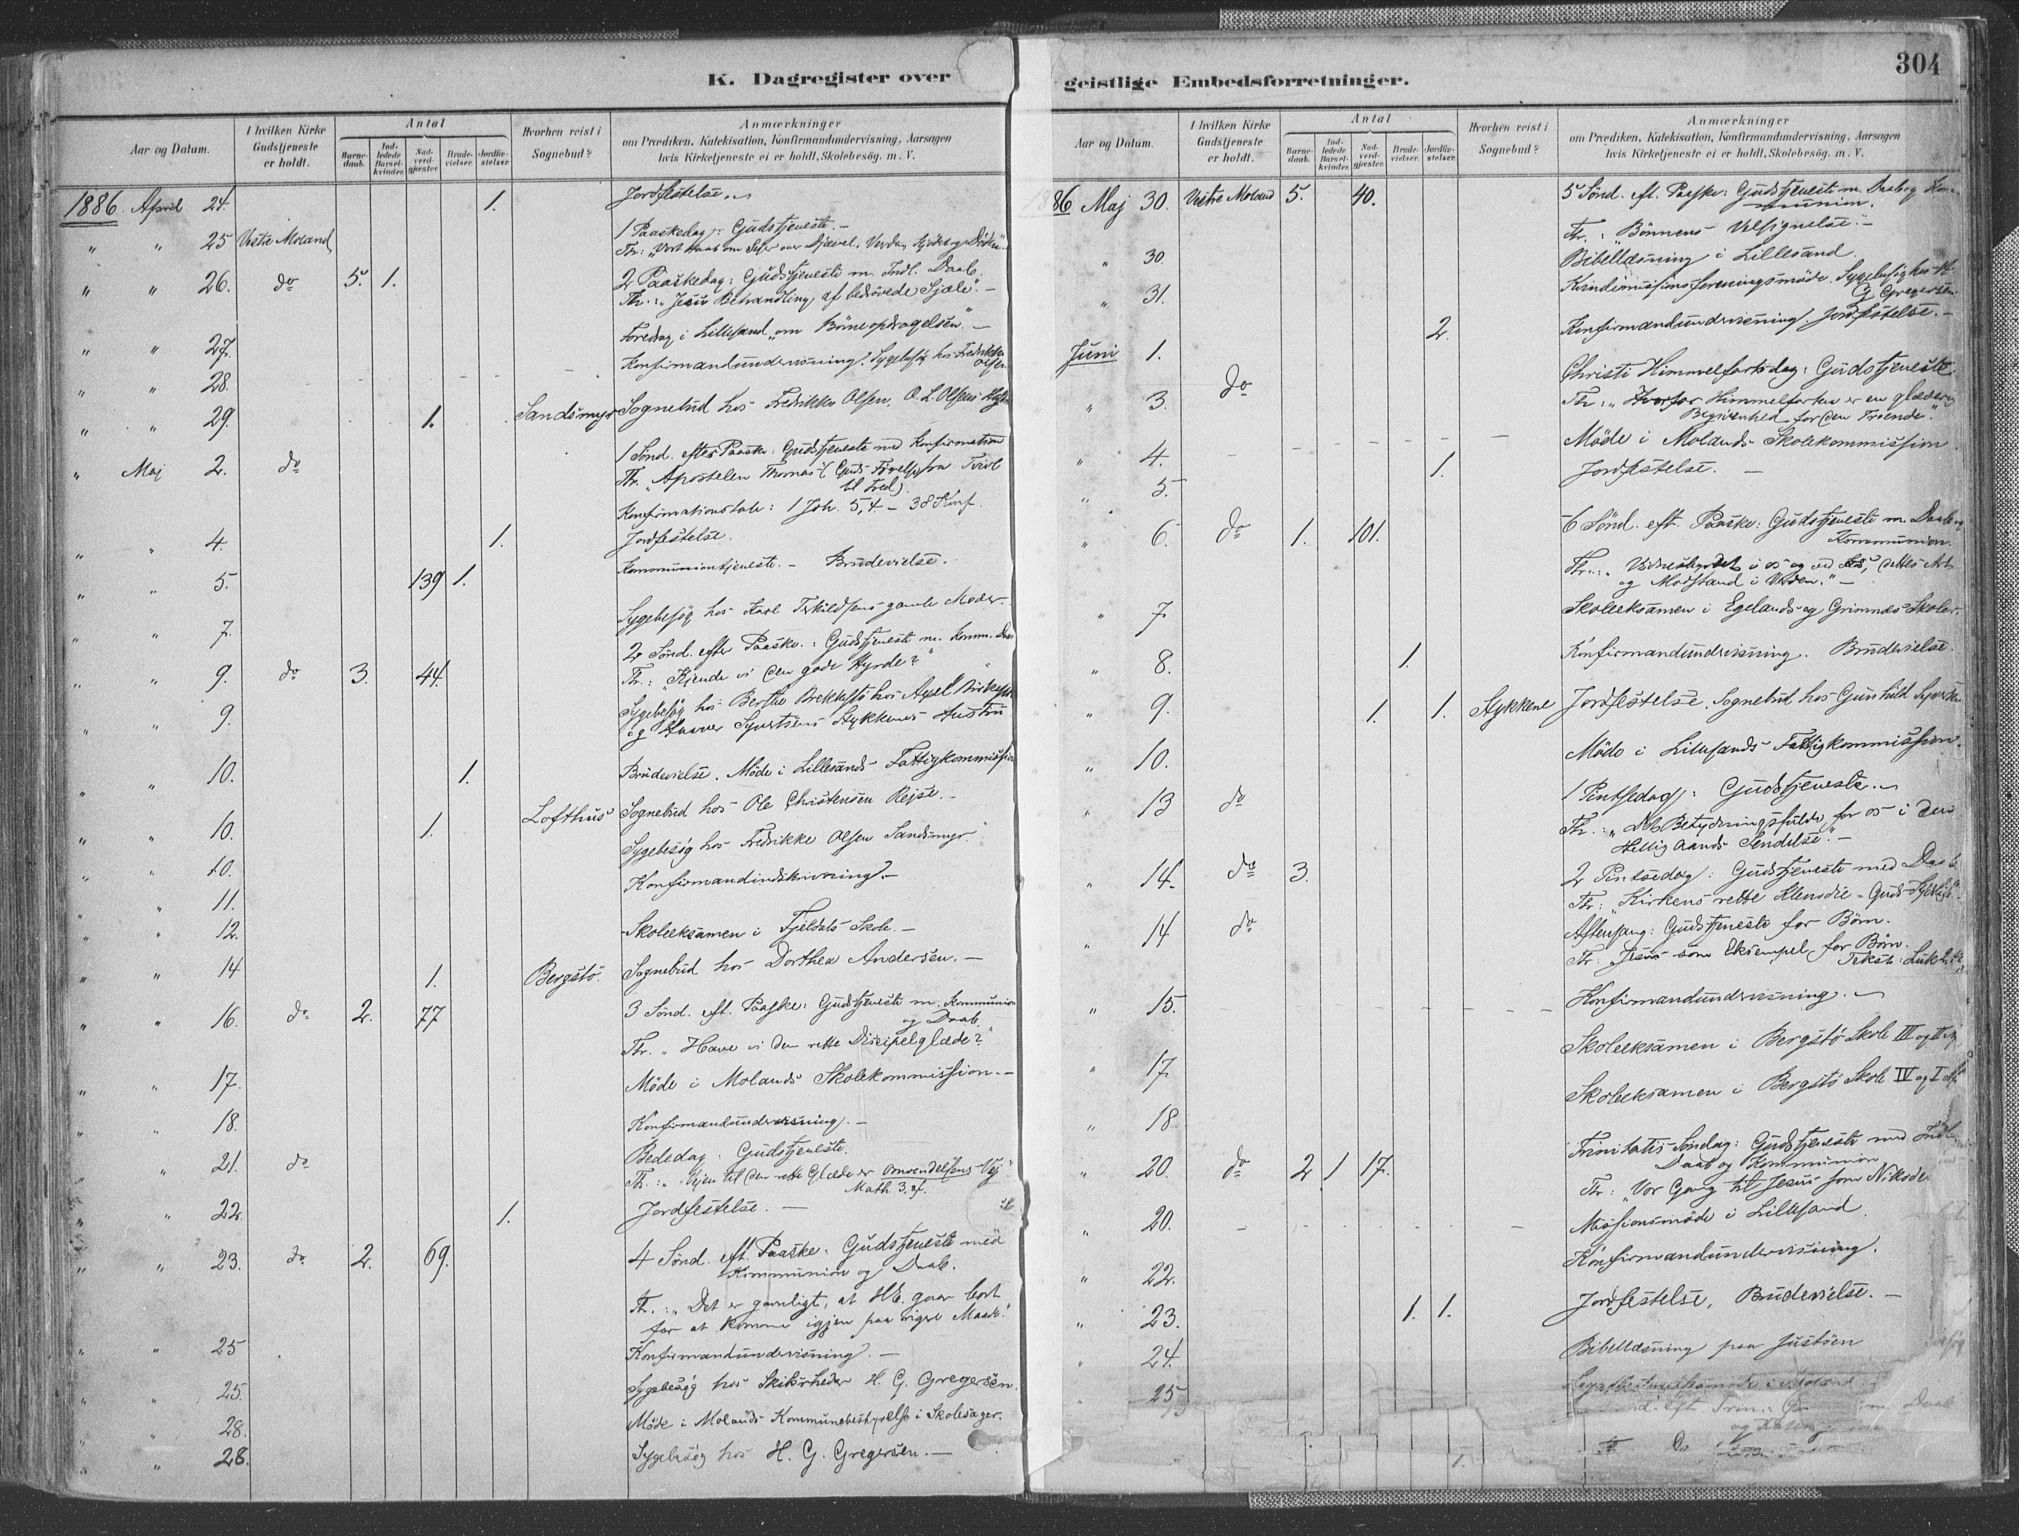 K. Dagregister over geistlige Embedsforretninger.
304
Aar og Datum.
I hvilken Kirke Gudstjeneste er holdt.
Antal
Barnedaab.
Indledede Barselkvinder.
Nadverdgjester.
Brudevielser.
Jordfæstelser.
Hvorhen reist i Sognebud?
Anmærkninger
om Prædiken, Katekisation, Konfirmandundervisning, Aarsagen
hvis Kirketjeneste ei er holdt, Skolebesøg. m. V.
1886 April 24. 1. Jordfestelse.
" " 25 Vestre Moland 1 Paaskedag: Gudstjeneste. -
" " 26. do 5. 1. 2 Paaskedag: Gudstjeneste m. Indl. Daab.
Th.: "Jesu Behandling af bedrøvede Sjæle". -
Foredrag i Lillesand "om Børneopdragelsen". -
" " 27.
Konfirmandundervisning. Sygebesøg hos Fredrikke Olsen
" " 28.
" " 29. 1. Sandsmyr Sognebud hos Fredrikke Olsen, O. L. Olsens
" Maj 2. do 1 Sønd. efter Paaske: Gudstjeneste med Konfirmation
Th. "Apostelen Thomas" (Guds fra Tvivl
til Fred)
Konfirmationstale: 1 Joh. 5,4. - 38 Konf.
" " 4. 1. Jordfestelse.
" " 5. 139 1. Kommuniontjeneste. - Brudevielse.
" " 7. Sygebesøg hos Terkildsens gamle Moder.
2 Sønd. efter Paaske.: Gudstjeneste m. Komm. Daab
" " 9. do 3. 44. Th.: "Kjende vi den gode Hyrde?"
" " 9. Sygebesøg hos Berthe hos
og Sjurtsens Stykkenes Hustru
" " 10. 1. Brudevielse. Møde i Lillesands Fattigkommission
" " 10. 1. Lofthus Sognebud hos Ole Christensen Rejse. -
" " 10. Sygebesøg hos Fredrikke Olsen Sandsmyr.
" " 11. Konfirmandindskrivning. -
" " 12. Skoleeksamen i Fjeldals Skole. -
" " 14 1. Bergstø. Sognebud hos Dorthea Andersen. -
" " 16. do 2. 77 3 Sønd. eft. Paaske: Gudstjeneste m. Kommunion
og Daab
Th. "Have vi den rette Discipelglæde?"
" " 17. Møde i Molands Skolekommission. -
" " 18. Konfirmandundervisning. -
" " 21. do Bededag: Gudstjeneste.
Th.: "Vejen til den rette Glæde er Omvendelsens Vej."
Math. 3,
" " 22. 1. Jordfestelse. -
" " 23. do 2. 69. 4 Sønd. eft. Paaske. Gudstjeneste med
Kommunion og Daab.
Th.: "Det er gavnligt, at HE. gaar bort
for at komme igjen paa Maade."
" " 25 Konfirmandundervisning. -
" " 25. Sygebesøg hos Skibsrheder H. G. Gregersen.
" " 28. Møde i Molands Kommunebestyrelse i Skolesager.
" " 28. Sygebesøg hos H. G. Gregersen. -
Aar og Datum.
I hvilken Kirke Gudstjeneste er holdt.
Antal
Barnedaab.
Indledede Barselkvinder.
Nadverdgjester.
Brudevielser.
Jordfæstelser.
Hvorhen reist i Sognebud?
Anmærkninger
om Prædiken, Katekisation, Konfirmandundervisning, Aarsagen
hvis Kirketjeneste ei er holdt, Skolebesøg. m. V.
1886 Maj 30. Vestre Moland 5. 40. 5 Sønd. eft. Paaske: Gudstjeneste m. Daab og Kommunion.
Th.: Bønnens Velsignelse. -
" 30 Bibellæsning i Lillesand.
" 31. Kvindemissionsforeningsmøde. Sygebesøg hos H.
G Gregersen
2. Konfirmandundervisning. Jordfestelse. -
Juni 1.
" 3. do Christi Himmelfartsdag: Gudstjeneste.
Th.: "Hvorfor Himmelfarten er en glædelig
Begivenhed for den Troende".
" 4. Møde i Molands Skolekommission.
" 5. 1. Jordfestelse. -
" 6. do 1. 101. 6 Sønd. eft. Paaske: Gudstjeneste m. Daab og
Kommunion.
Th.: "Vidnesbyrdet i os og ved os, dettes
og Modstand i Verden." -
" 7. Skoleeksamen i Egelands og Grimnes Skoler.
" 8. 1. Konfirmandundervisning. Brudevielse.
" 9. 1. 1. Stykkene Jordfestelse. Sognebud hos Gunhild
" 10. Møde i Lillesands Fattigkommission.
" 13 do 1 Pintsedag: Gudstjeneste.
Th.: "Det Betydningsfulde for os i den
Hellig Aands Sendelse". -
" 14. do 3. 2 Pintsedag: Gudstjeneste med Daab
Th: "Kirkens rette Klenodie - Guds
" 14 do Aftensang: Gudstjeneste for Børn.
Th: "Jesus som Eksempel for Børn.
Tekst: Luk.
" 15. Konfirmandundervisning.
" 17. Skoleeksamen i Bergstø Skole III og II
" 18. Skoleeksamen i Bergstø Skole IV og I
" 20. do 2 1 17. Trinitatis Søndag: Gudstjeneste med Indl.
Daab og Kommunion
Th: "Vor Gang til Jesus som
" 20. Missionsmøde i Lillesand.
" 22. Konfirmandundervisning.
" 23. 1. 1. Jordfestelse. Brudevielse. -
" 24. Bibellæsning paa Justøen
" 25
1.